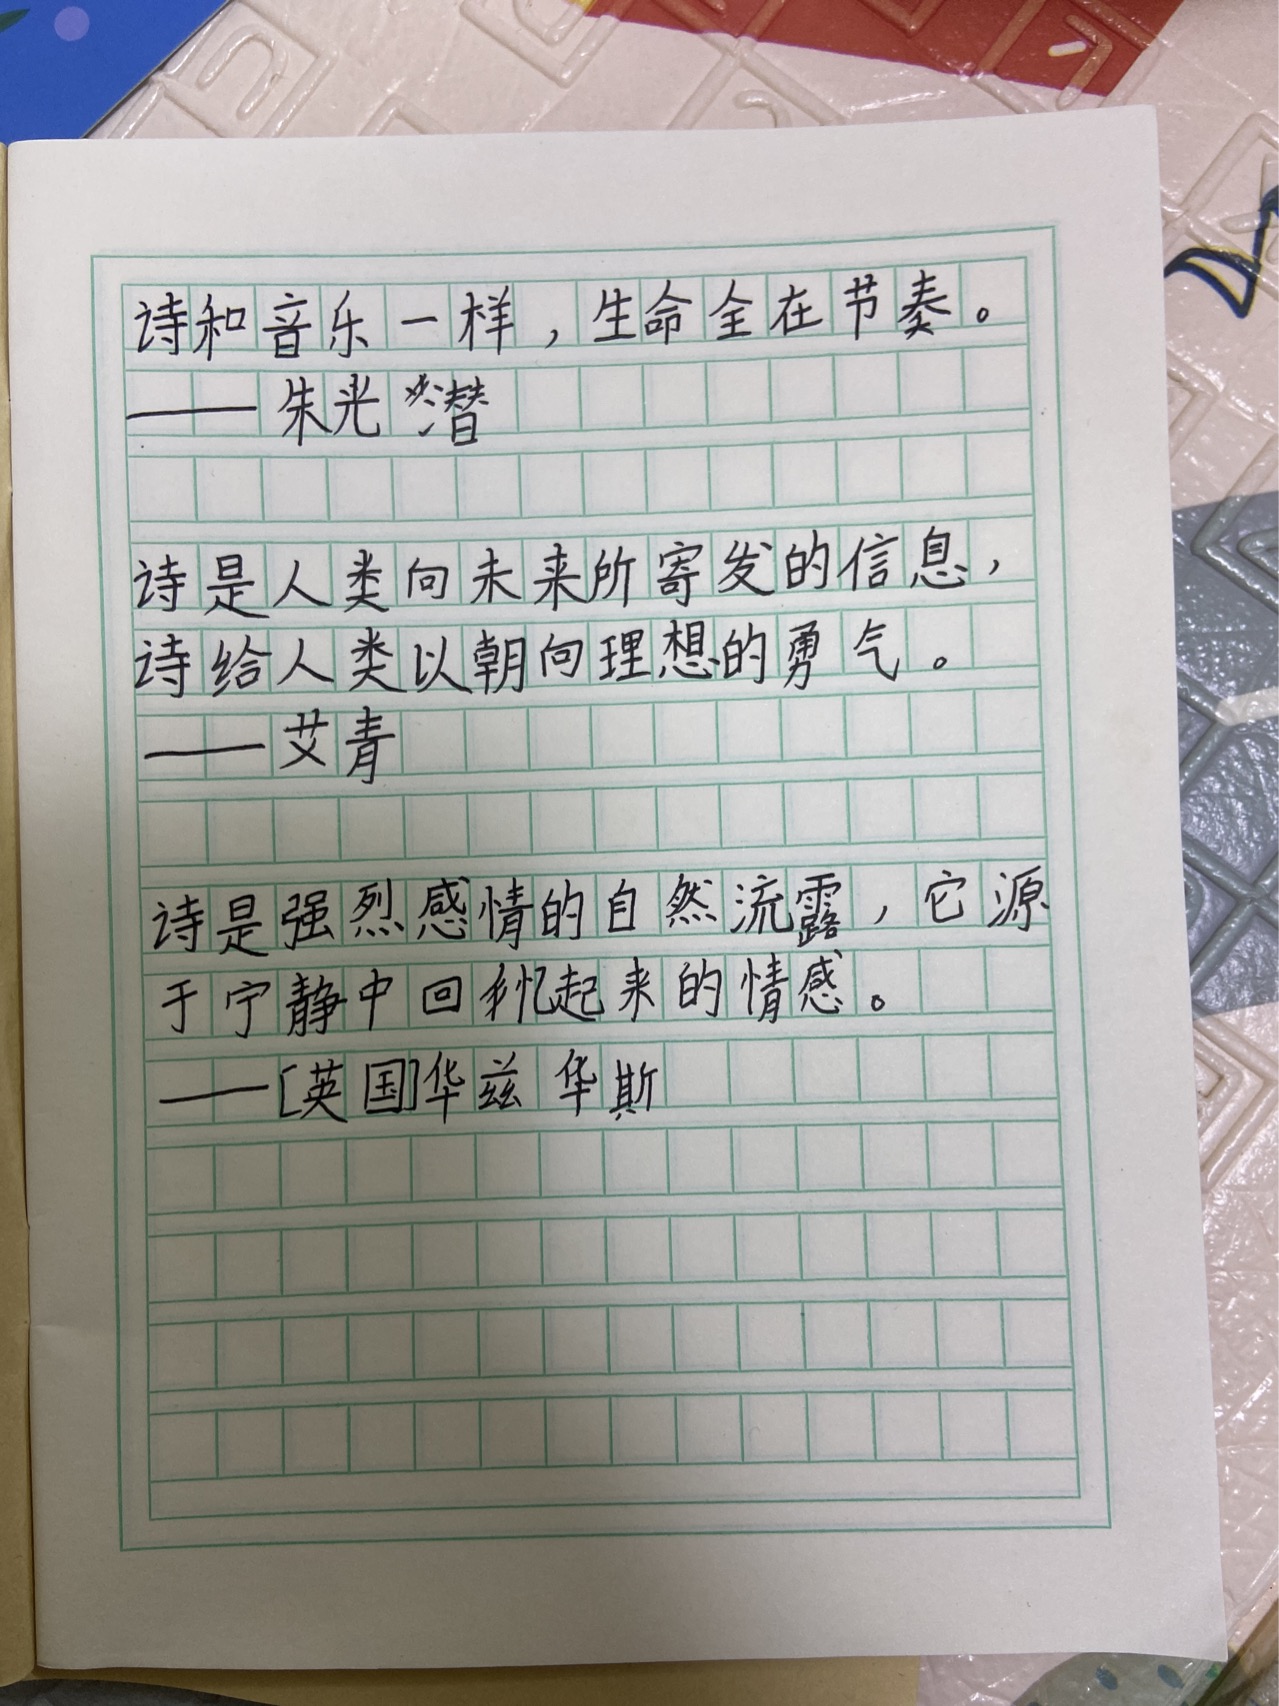 诗和音乐一样，生命全在节奏。
——朱光潜
诗是人类向未来所寄发的信息，
诗给人类以朝向理想的勇气。
——艾青
诗是强烈感情的自然流露，它源
于宁静中回忆起来的情感。
——[英国]华兹华斯